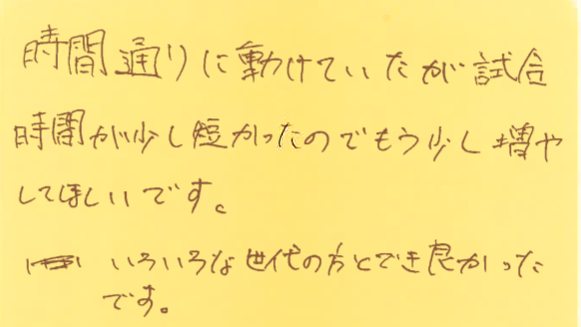 時間通りに動けていたが試合
時間が少し短かったのでもう少し増や
してほしいです。
いろいろな世代の方とでき良かった
です。